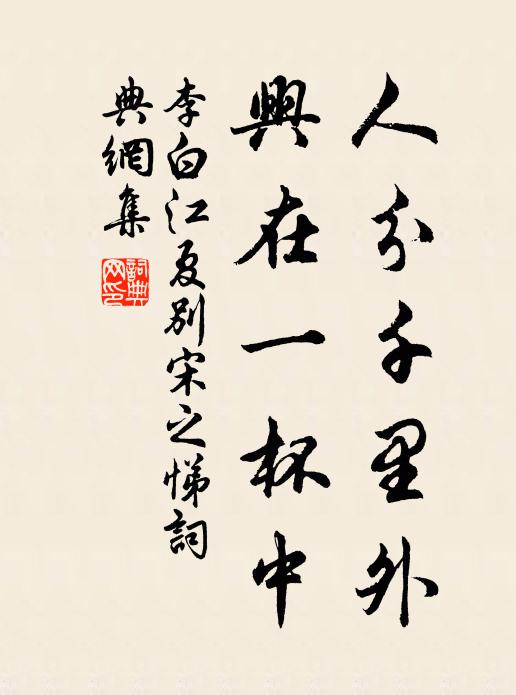 人分千里外
興在一杯中
李白江夏別宋之悌詞
典網集
詞典
网印